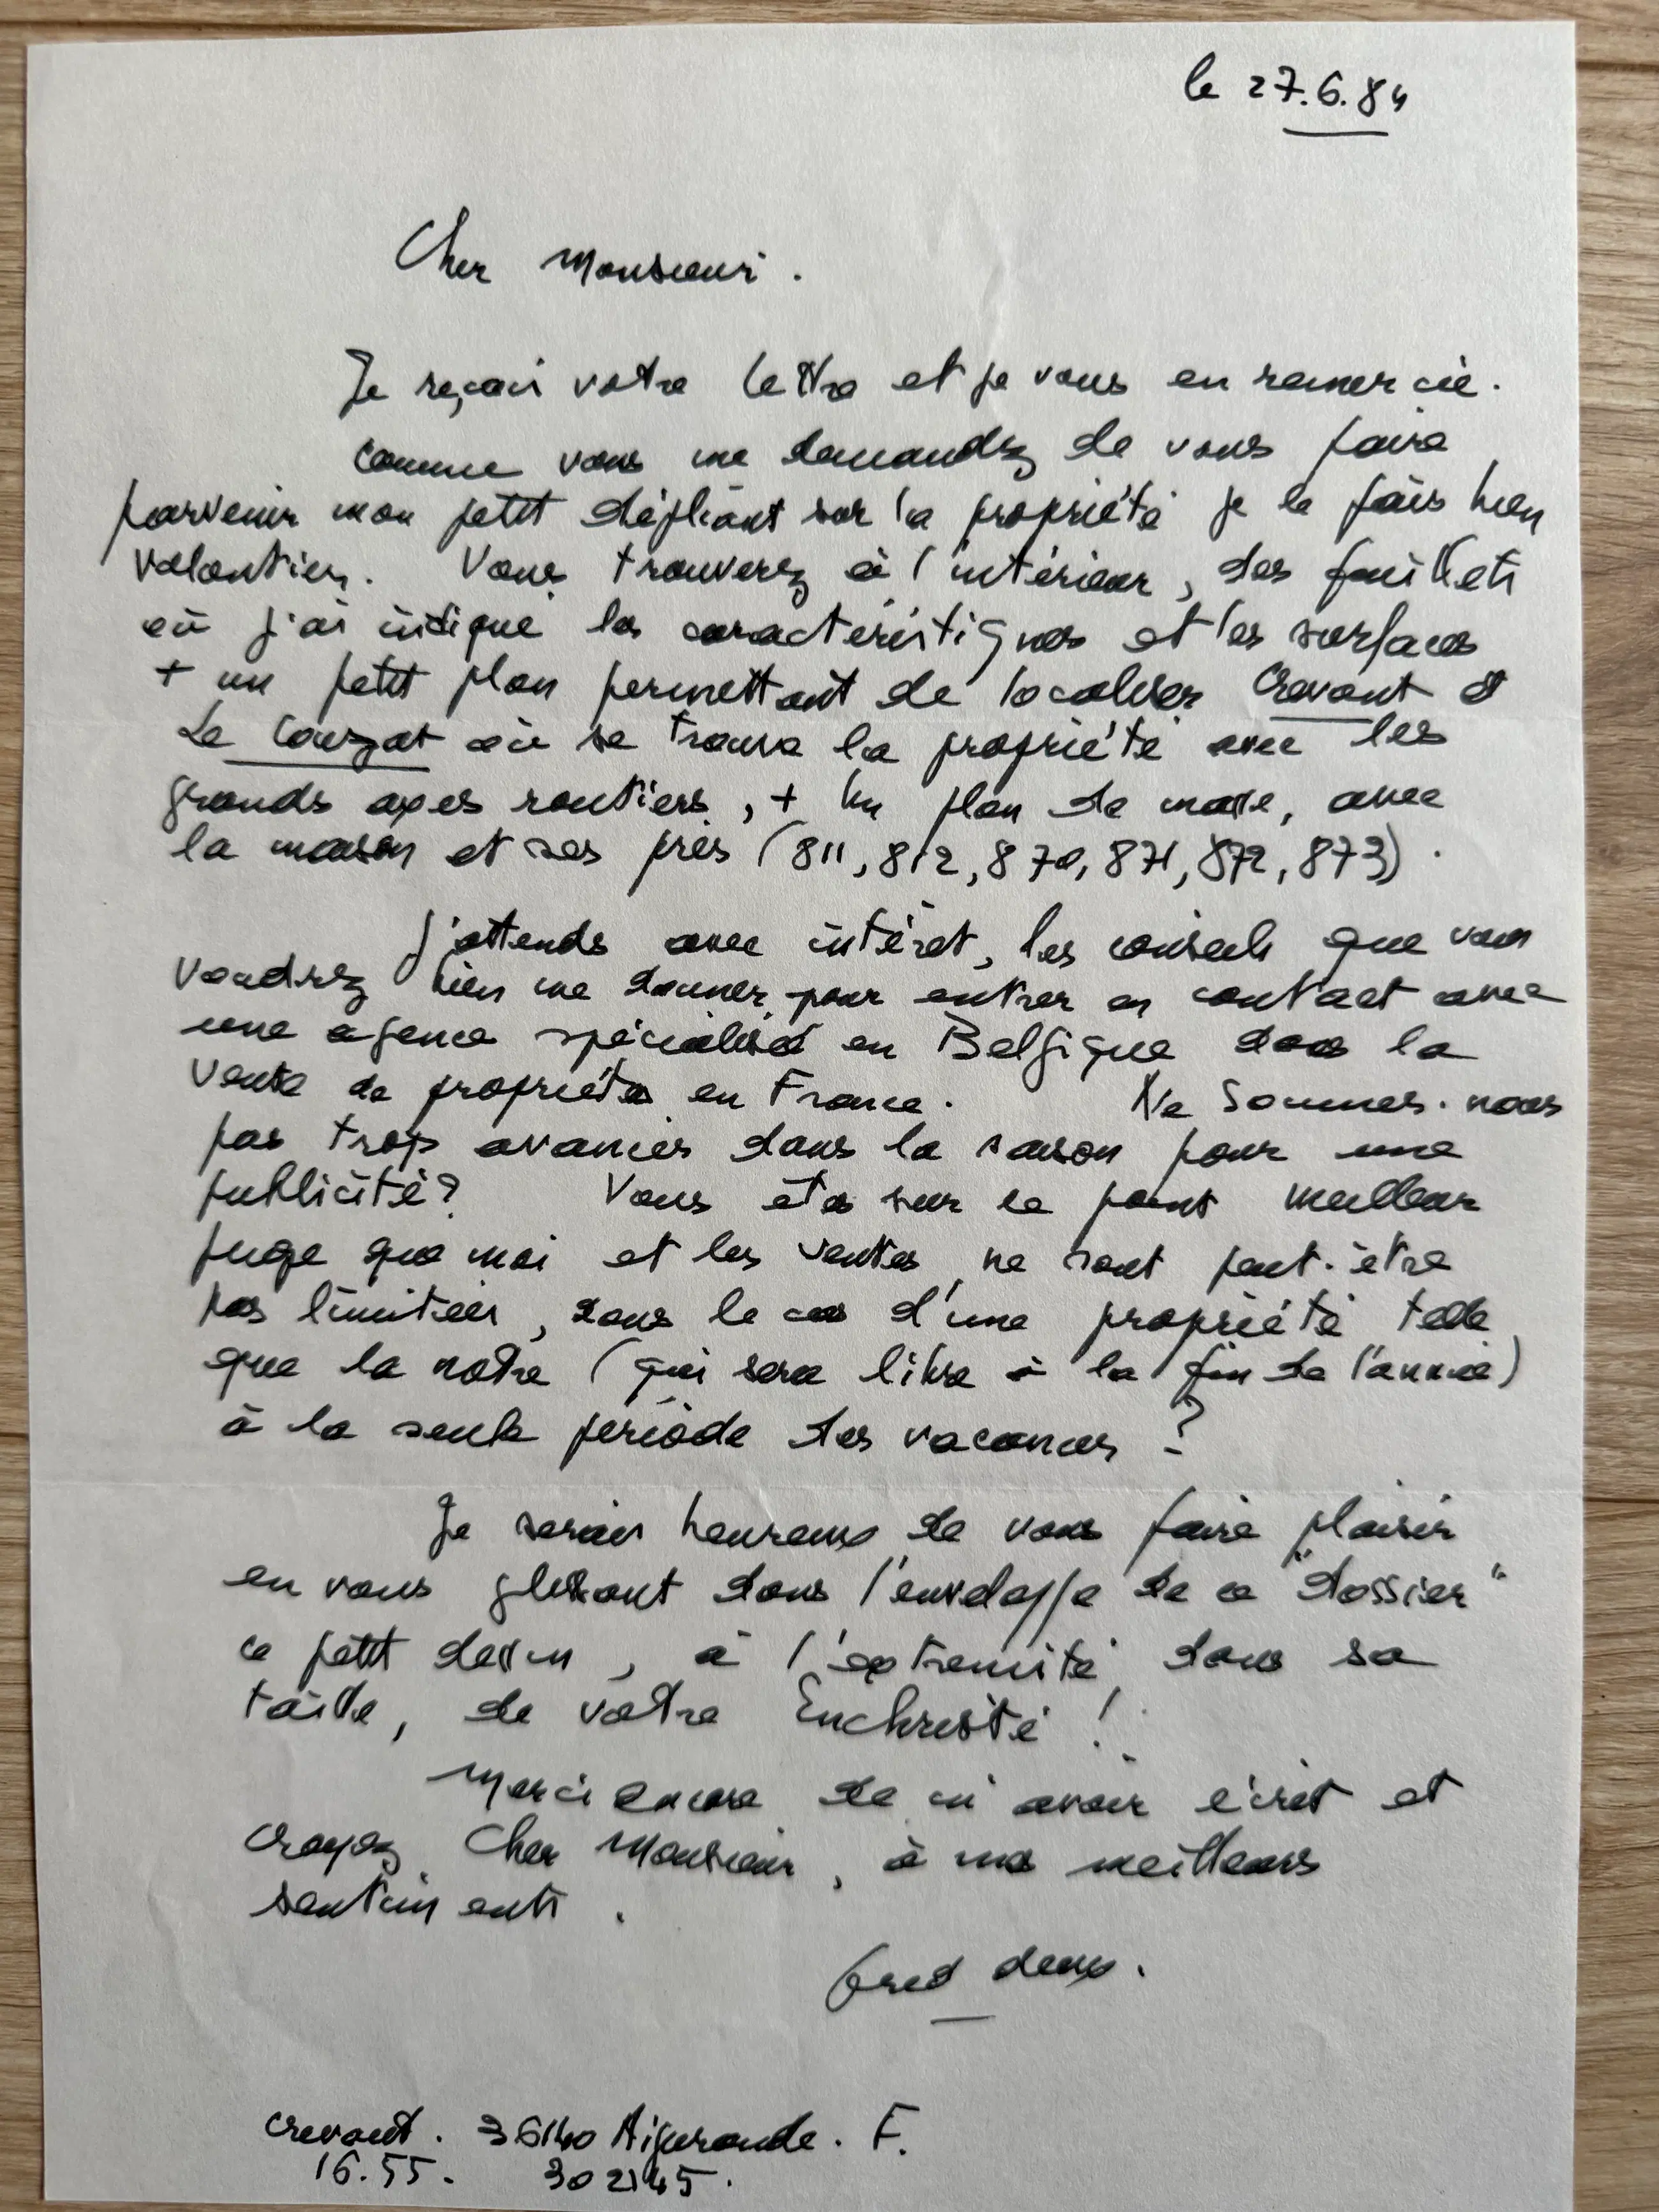 le 27.6.84
Cher Monsieur.
Je reçois votre lettre et je vous en remercie.
Comme vous me demandez de vous faire
parvenir mon petit dépliant sur la propriété je le fais bien
volontiers. Vous trouverez à l'intérieur, des feuillets
où j'ai indiqué les caractéristiques et les surfaces
+ un petit plan permettant de localiser Crevant et
Le Couzat où se trouve la propriété avec les
grands axes routiers, + un plan de masse, avec
la maison et ses près (811, 812, 870, 871, 872, 873).
J'attends avec intéret, les conseils que vous
voudrez bien me donner pour entrer en contact avec
une agence spécialisé en Belgique dans la
vente de propriétés en France. Ne sommes-nous
pas trop avancés dans la saison pour une
publicité? Vous êtes sur ce point meilleur
juge que moi et les ventes ne sont peut-être
pas limitées, dans le cas d'une propriété telle
que la notre (qui sera libre à la fin de l'année)
à la seule période des vacances ?
Je serais heureux de vous faire plaisir
en vous glissant dans l'enveloppe de ce "dossier"
ce petit dessin, à l'extremité dans sa
taille, de votre Enchristé !
Merci encore de m'avoir écrit et
croyez Cher Monsieur, à mes meilleurs
sentiments.
fred deux.
Crevant. 36140 Aigurande. F.
16.55. 302145.